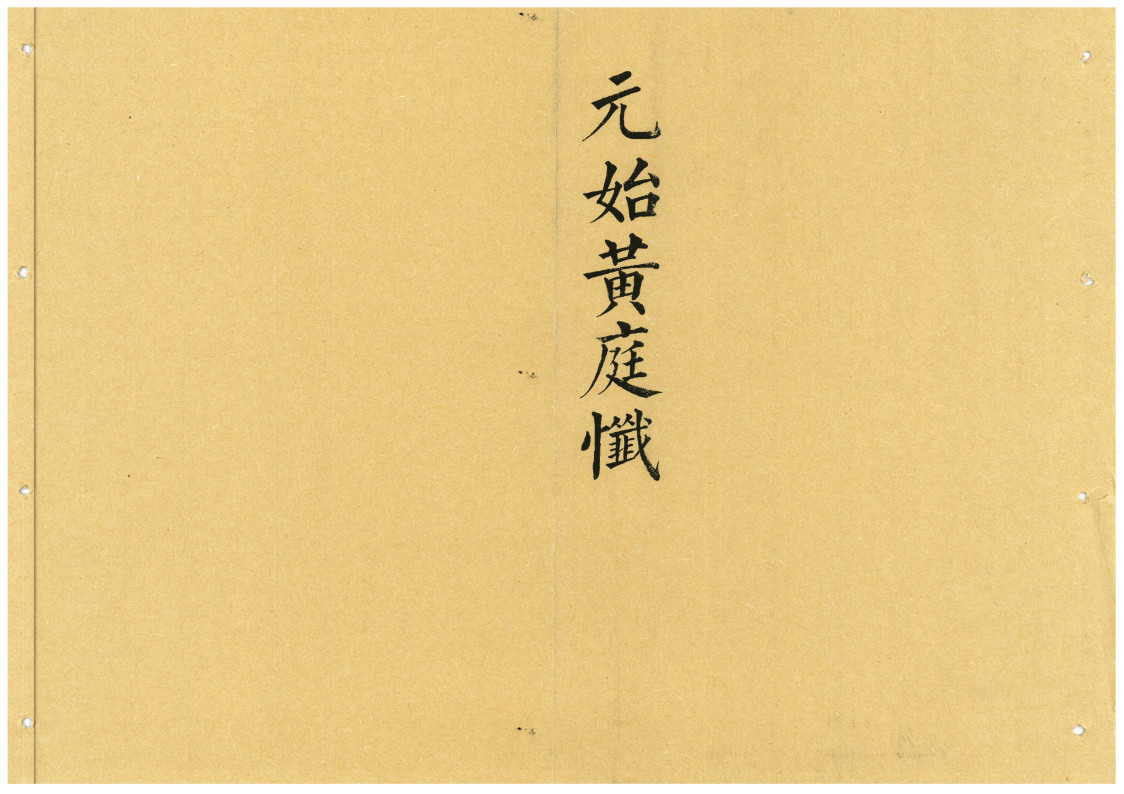 元始黃庭懺